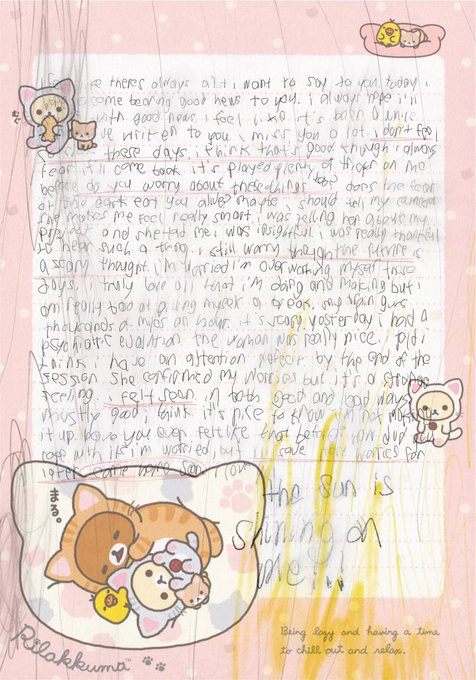 theres always a lot i want to say to you. today i
come bearing good news to you. i always hope i'll
with good news. i feel like it's been a while
written to you. i miss you a lot. i don't feel
these days. i think that's good though i always
fear it'll come back. it's played plenty of tricks on me
before. do you worry about these things too? does the fear
of the dark eat you always maybe i should tell my
she makes me feel really smart i was telling her about my
project and she told me i was insightful. i was really thankful
to hear such a thing. i still worry though the future is
a scary thought. i'm worried i'm overworking myself these
days. i truly love all that i'm doing and making but i
am really bad at giving myself a break. my brain runs
thousands of miles an hour. it's scary. yesterday i had a
psychiatric evaluation the woman was really nice.
i have an attention deficit by the end of the
session she confirmed my worries but it's a strange
feeling. i felt in both good and bad ways
mostly good, i think it's nice to know
it up. have you ever felt like that before? how did you
cope with it? i'm worried but i'll save more worries for
later. come home soon. love
the sun is
shining on
me!!
まる。
Rilakkuma™
Being lazy and having a time
to chill out and relax.